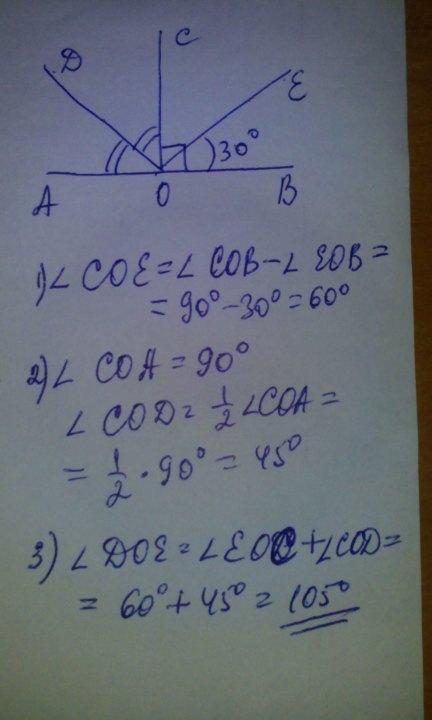 C
D
E
30°
A
O
B
1) ∠ COE = ∠ COB - ∠ EOB =
= 90° - 30° = 60°
2) ∠ COA = 90°
∠ COD = 1/2 ∠COA =
= 1/2 · 90° = 45°
3) ∠ DOE = ∠EOC + ∠COD =
= 60° + 45° = 105°